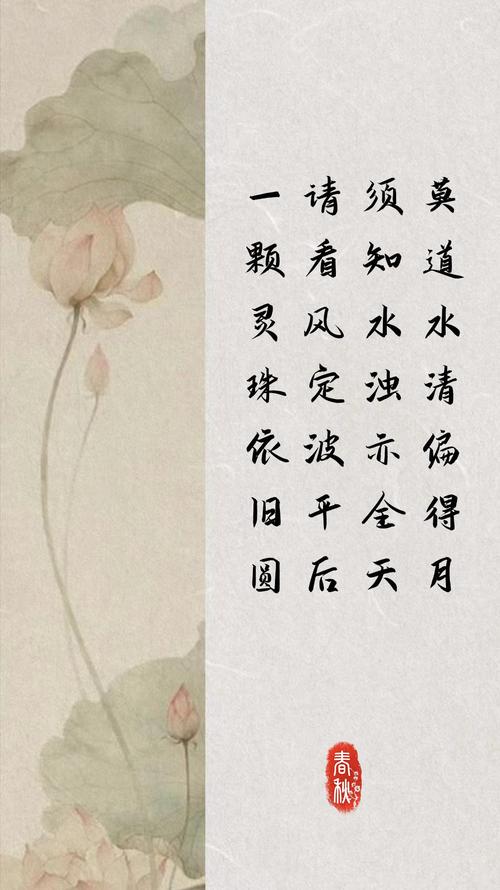 莫道水清偏得月
须知水浊亦全天
请看风定波平后
一颗灵珠依旧圆
春秋